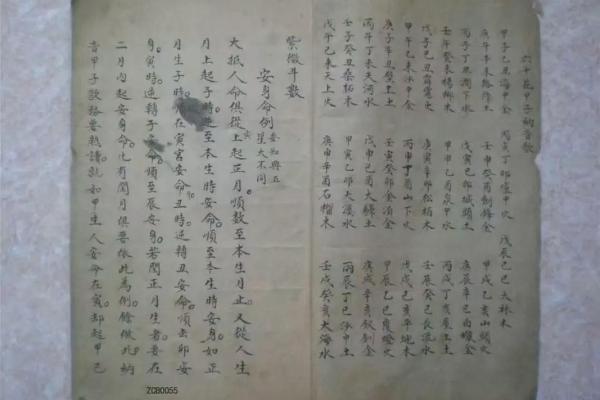 六十花甲子納音歌
甲子乙丑海中金 丙寅丁卯爐中火 戊辰己巳大林木
庚午辛未路傍土 壬申癸酉劍鋒金 甲戌乙亥山頭火
丙子丁丑澗下水 戊寅己卯城頭土 庚辰辛巳白蠟金
壬午癸未楊柳木 甲申乙酉泉中水 丙戌丁亥屋上土
戊子己丑霹靂火 庚寅辛卯松柏木 壬辰癸巳長流水
甲午乙未沙中金 丙申丁酉山下火 戊戌己亥平地木
庚子辛丑壁上土 壬寅癸卯金泊金 甲辰乙巳覆燈火
丙午丁未天河水 戊申己酉大驛土 庚戌辛亥釵釧金
壬子癸丑桑柘木 甲寅乙卯大溪水 丙辰丁巳沙中土
戊午己未天上火 庚申辛酉石榴木 壬戌癸亥大海水
紫微斗數
安身命例 要知與五星大不同
大抵人命俱從寅上起正月順數至本生月止又從人生
月上起子時逆至本生時安命順至本生時安身如正
月生子時就在寅宮安命丑時逆轉丑安命順去卯安
身寅時逆轉子安命順至辰安身若閏正月生者要在
二月內起安身命凡有閏月俱要依此為例餘倣此納
音甲子歌務要熟讀就如甲生人安命在寅却起甲己
ZCB0055